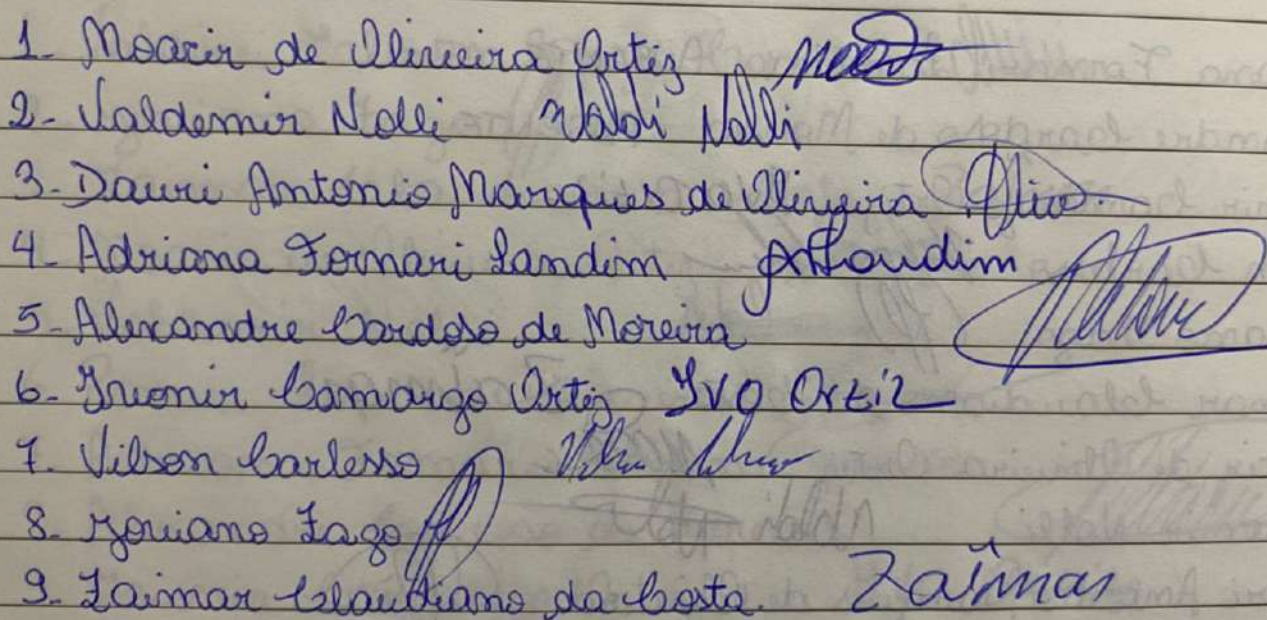 1. Moacir de Oliveira Ortiz
2- Valdemir Nolli Valdi Nolli
3- Dauri Antonio Marques de Oliveira
4- Adriana Fornari Landim Landim
5- Alexandre Cardoso de Moreira
6- Ivonir Camargo Ortiz IVO Ortiz
7. Vilson Carlesso
8. Joviano Zago
9- Zaimar Claudiano da Costa. Zaimar